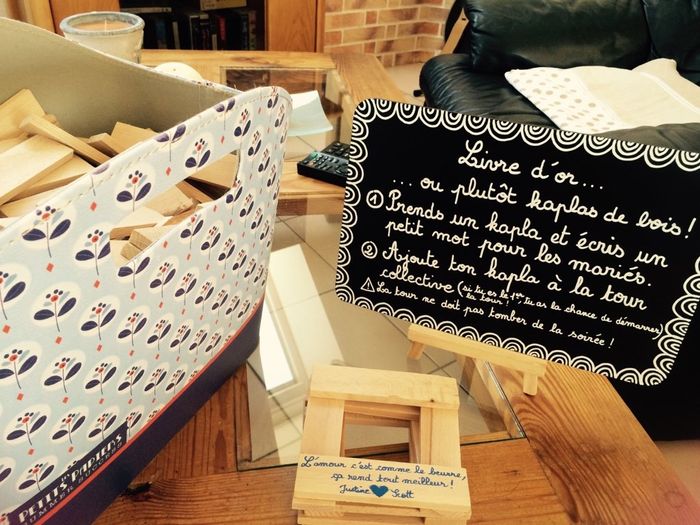 Livre d'or...
... ou plutôt kaplas de bois!
① Prends un kapla et écris un
petit mot pour les mariés.
② Ajoute ton kapla à la tour
collective (si tu es le 1er, tu as la chance de démarrer
la tour!)
⚠ La tour ne doit pas tomber de la soirée!
L'amour c'est comme le beurre,
ça rend tout meilleur!
Justine Scott
PETITS PAPIERS
SUMMER SUCCESS